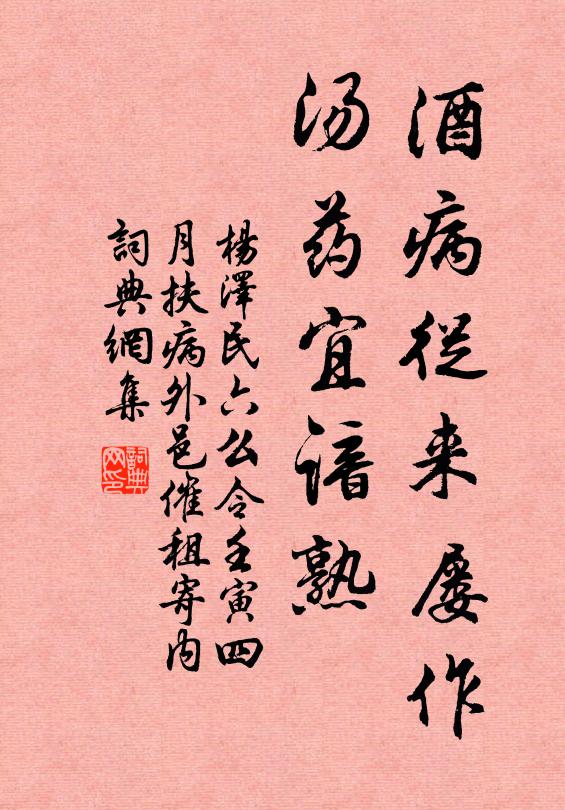 酒病從来屡作
汤药宜谙熟
楊澤民六么令壬寅四
月扶病外邑催租寄内
詞典網集
詞典网印